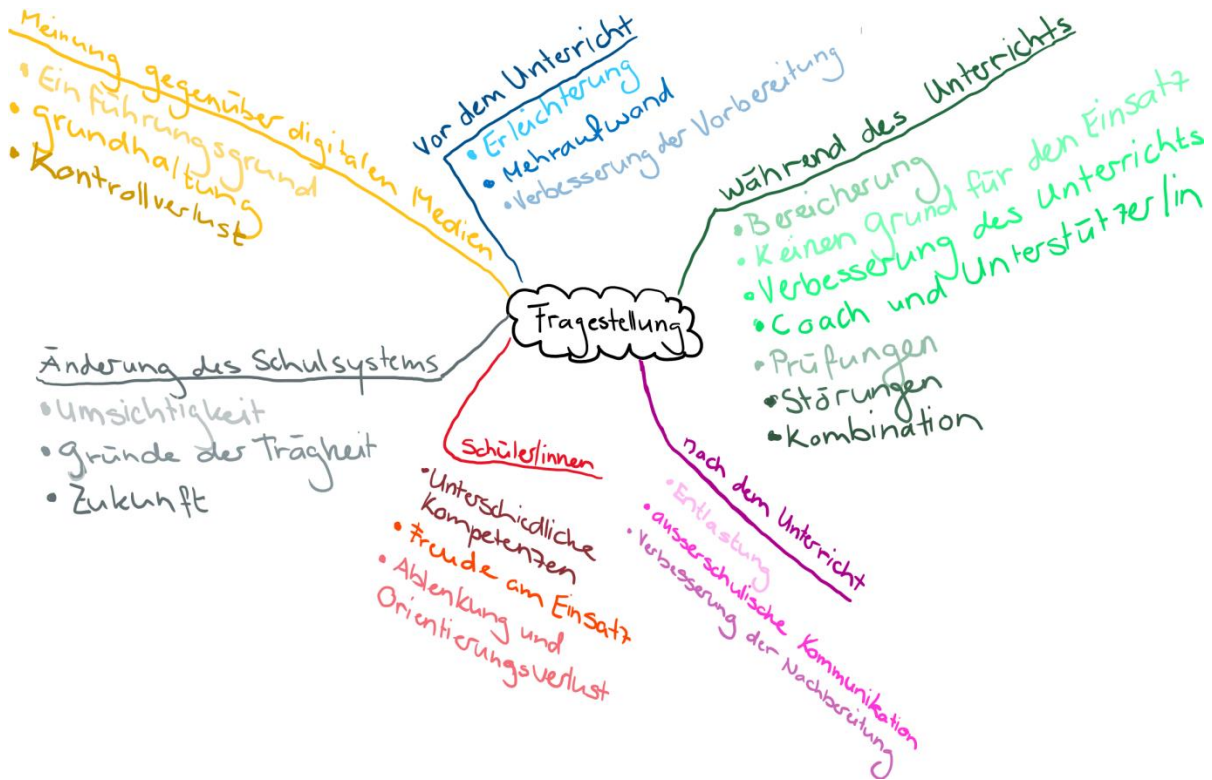 Meinung gegenüber digitalen Medien
• Einführungsgrund
• grundhaltung
• Kontrollverlust
Vor dem Unterricht
• Erleichterung
• Mehraufwand
• Verbesserung der Vorbereitung
Während des Unterrichts
• Bereicherung
• Keinen Grund für den Einsatz
• Verbesserung des Unterrichts
• Coach und Unterstützer/in
• Prüfungen
• Störungen
• Kombination
Fragestellung
Änderung des Schulsystems
• Umsichtigkeit
• Gründe der Trägheit
• Zukunft
Schüler/innen
• Unterschiedliche
Kompetenzen
• Freude am Einsatz
• Ablenkung und
Orientierungsverlust
nach dem Unterricht
• Entlastung
• ausserschulische Kommunikation
• Verbesserung der Nachbereitung